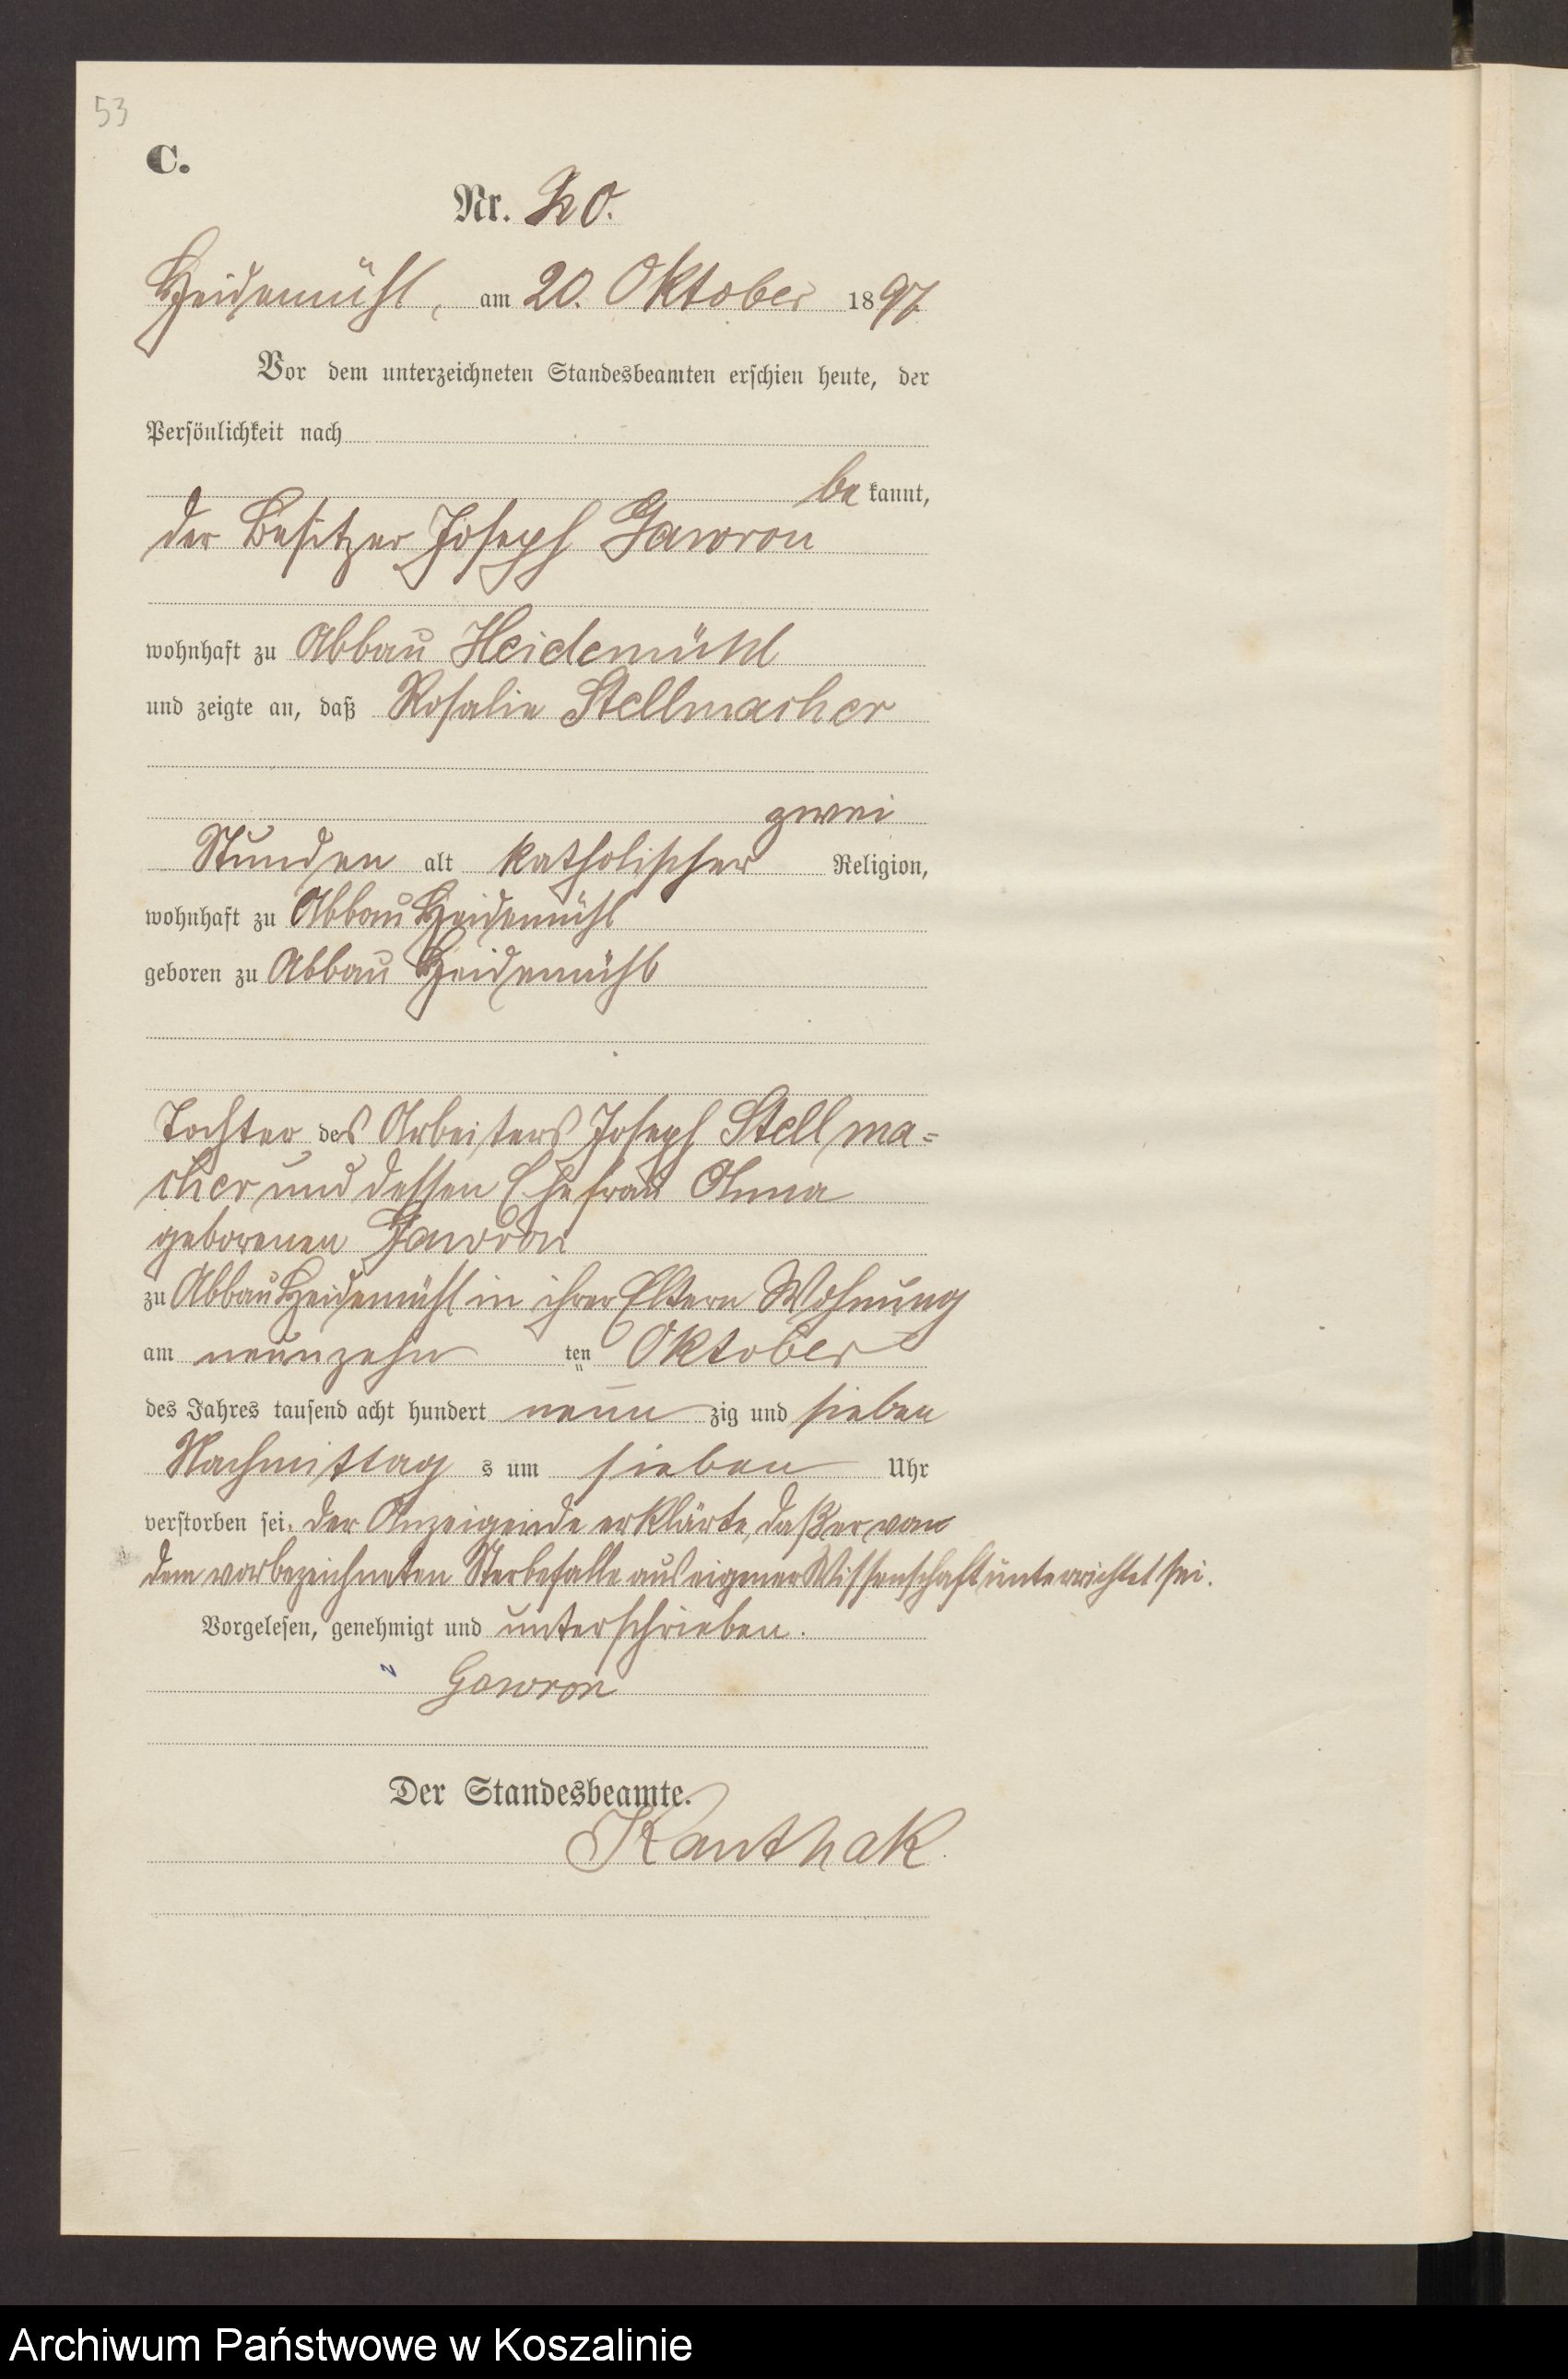 53
C.
Nr. 20.
Heidemühl, am 20. Oktober 1897
Vor dem unterzeichneten Standesbeamten erschien heute, der
Persönlichkeit nach
be kannt,
der Besitzer Joseph Gawron
wohnhaft zu Abbau Heidemühl
und zeigte an, daß Rosalie Stellmacher
zwei
Stunden alt katholischer Religion,
wohnhaft zu Abbau Heidemühl
geboren zu Abbau Heidemühl
Tochter des Arbeiters Joseph Stellma=
cher und dessen Ehefrau Anna
geborenen Gawron
zu Abbau Heidemühl in ihrer Eltern Wohnung
am neunzehn ten Oktober
des Jahres tausend acht hundert neun zig und sieben
Nachmittag s um sieben Uhr
verstorben sei. Der Anzeigende erklärte, daß er von
dem vorbezeichneten Sterbefalle aus eigener Wissenschaft unterrichtet sei.
Vorgelesen, genehmigt und unterschrieben.
Gawron
Der Standesbeamte.
Kanthak.
Archiwum Państwowe w Koszalinie